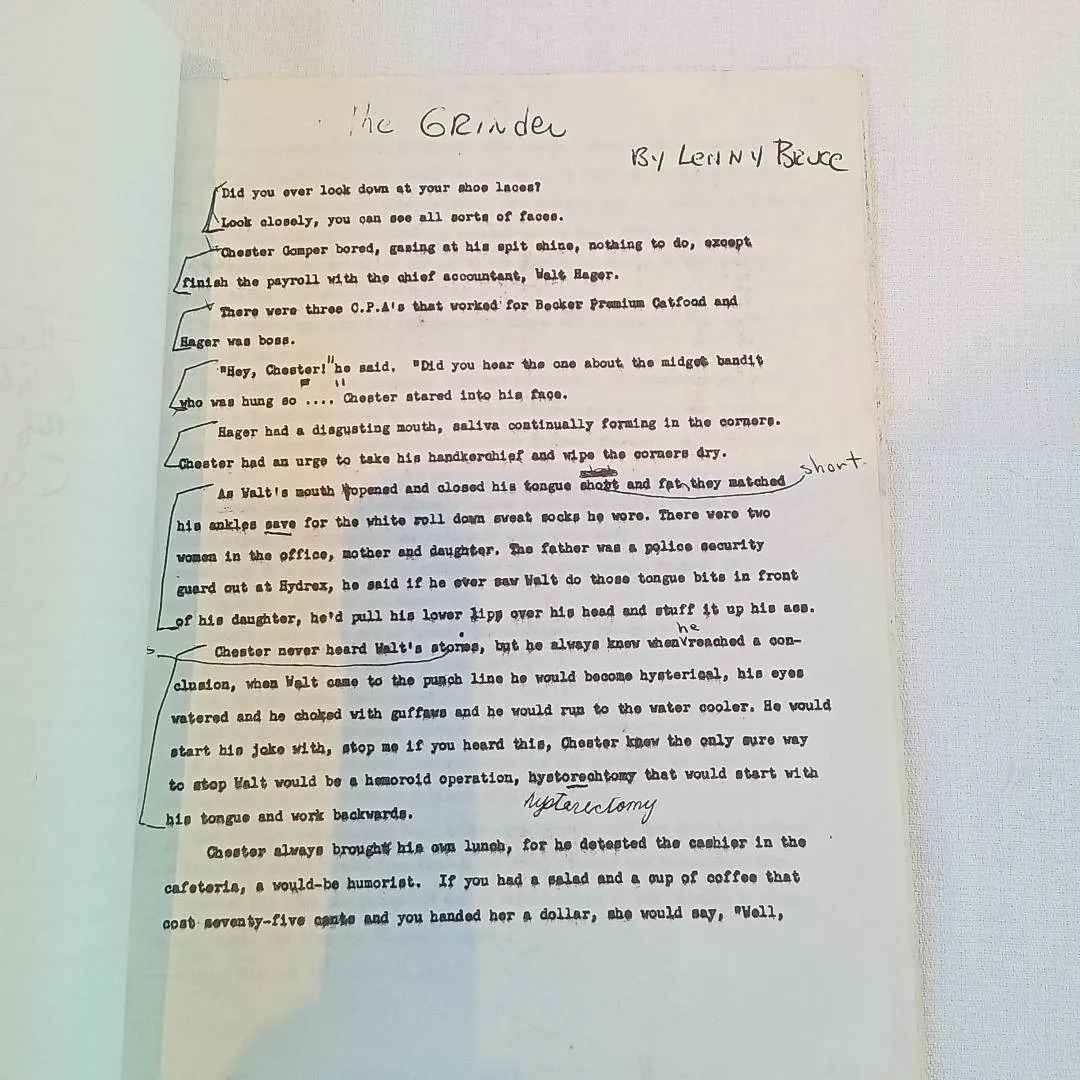 The GRinder
By LENNY BRUCE
Did you ever look down at your shoe laces?
Look closely, you can see all sorts of faces.
Chester Gomper bored, gazing at his spit shine, nothing to do, except
finish the payroll with the chief accountant, Walt Hager.
There were three C.P.A's that worked for Becker Premium Catfood and
Hager was boss.
"Hey, Chester!" he said. "Did you hear the one about the midget bandit
who was hung so .... " Chester stared into his face.
Hager had a disgusting mouth, saliva continually forming in the corners.
Chester had an urge to take his handkerchief and wipe the corners dry.
short.
As Walt's mouth opened and closed his tongue short and fat, they matched
his ankles save for the white roll down sweat socks he wore. There were two
women in the office, mother and daughter. The father was a police security
guard out at Hydrex, he said if he ever saw Walt do those tongue bits in front
of his daughter, he'd pull his lower lipp over his head and stuff it up his ass.
he
Chester never heard Walt's stories, but he always knew when reached a con-
clusion, when Walt came to the punch line he would become hysterical, his eyes
watered and he choked with guffaws and he would run to the water cooler. He would
start his joke with, stop me if you heard this, Chester knew the only sure way
to stop Walt would be a hemoroid operation, hystorechtomy that would start with
hysterectomy
his tongue and work backwards.
Chester always brought his own lunch, for he detested the cashier in the
cafeteria, a would-be humorist. If you had a salad and a cup of coffee that
cost seventy-five cents and you handed her a dollar, she would say, "Well,